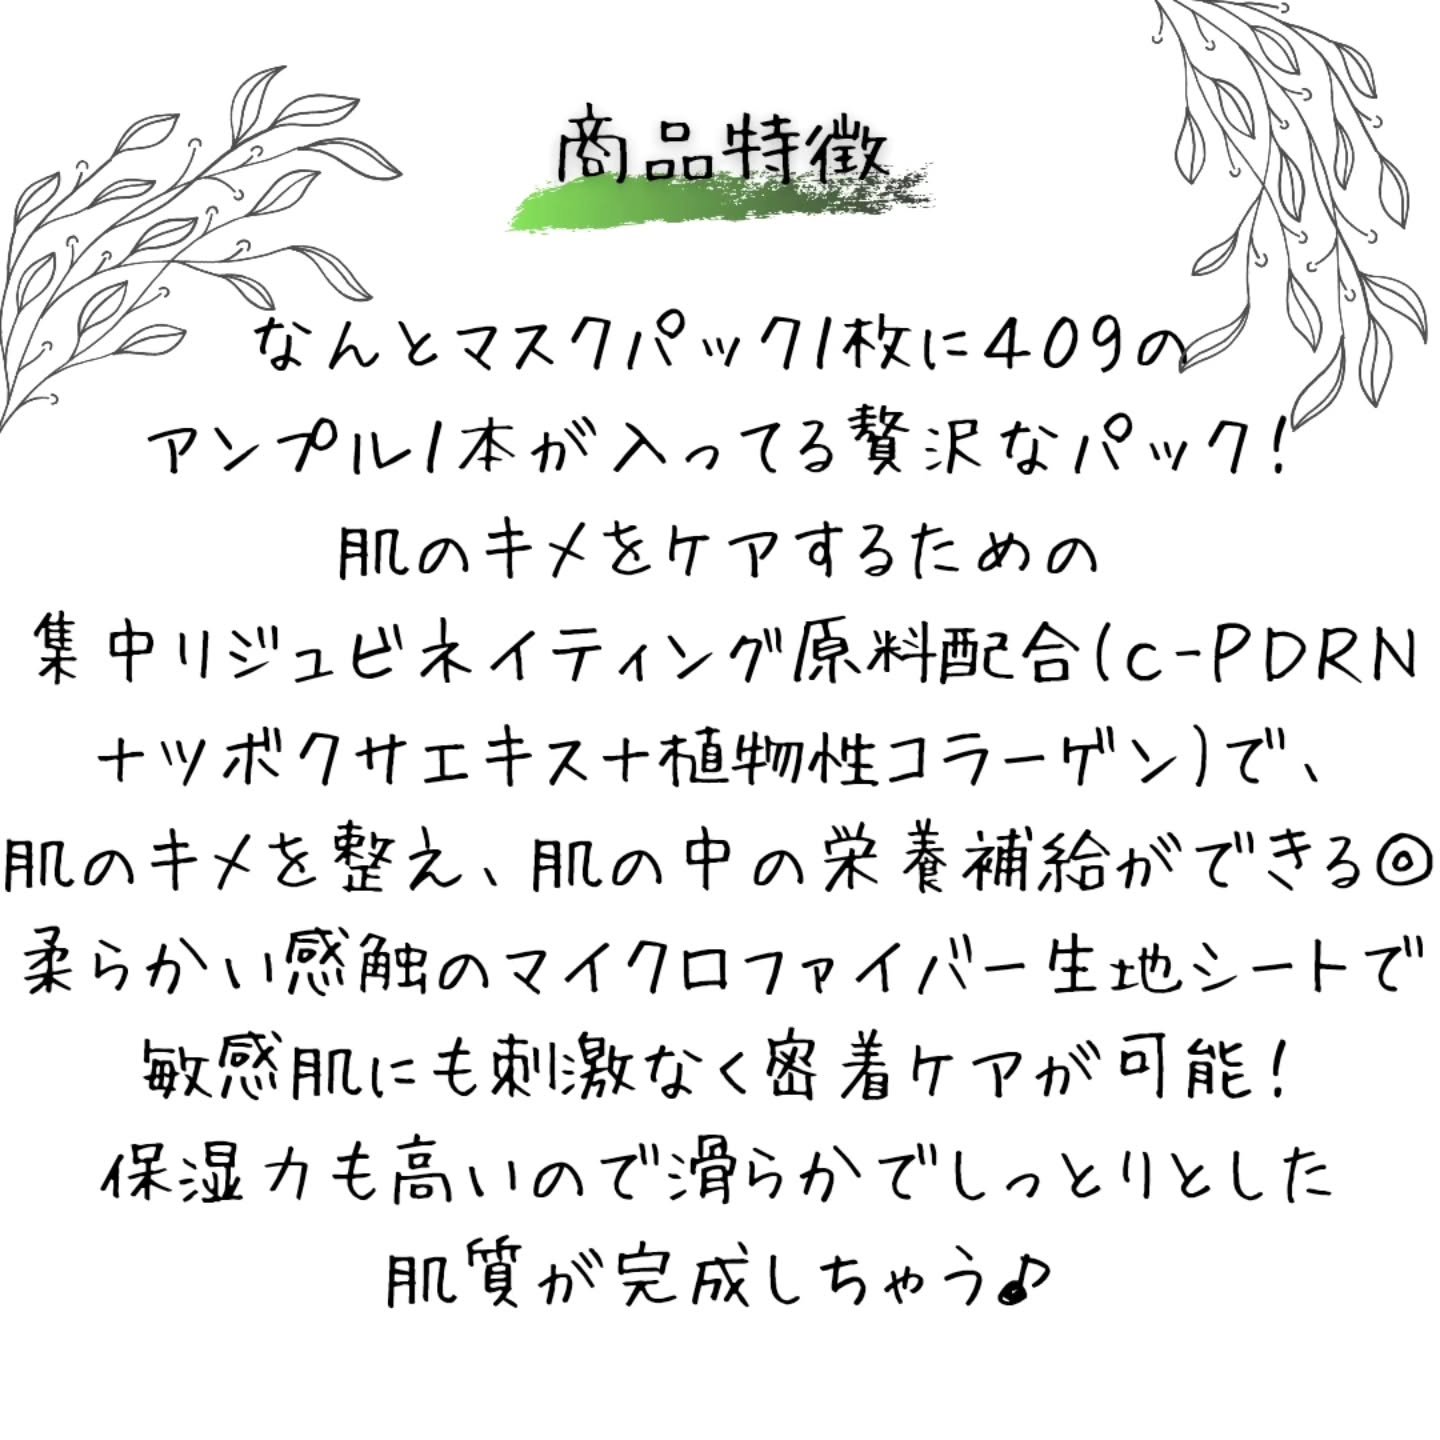 商品特徴
なんとマスクパック1枚に40gの
アンプル1本が入ってる贅沢なパック!
肌のキメをケアするための
集中リジュビネイティング原料配合(c-PDRN
+ツボクサエキス+植物性コラーゲン)で、
肌のキメを整え、肌の中の栄養補給ができる◎
柔らかい感触のマイクロファイバー生地シートで
敏感肌にも刺激なく密着ケアが可能!
保湿力も高いので滑らかでしっとりとした
肌質が完成しちゃう♪